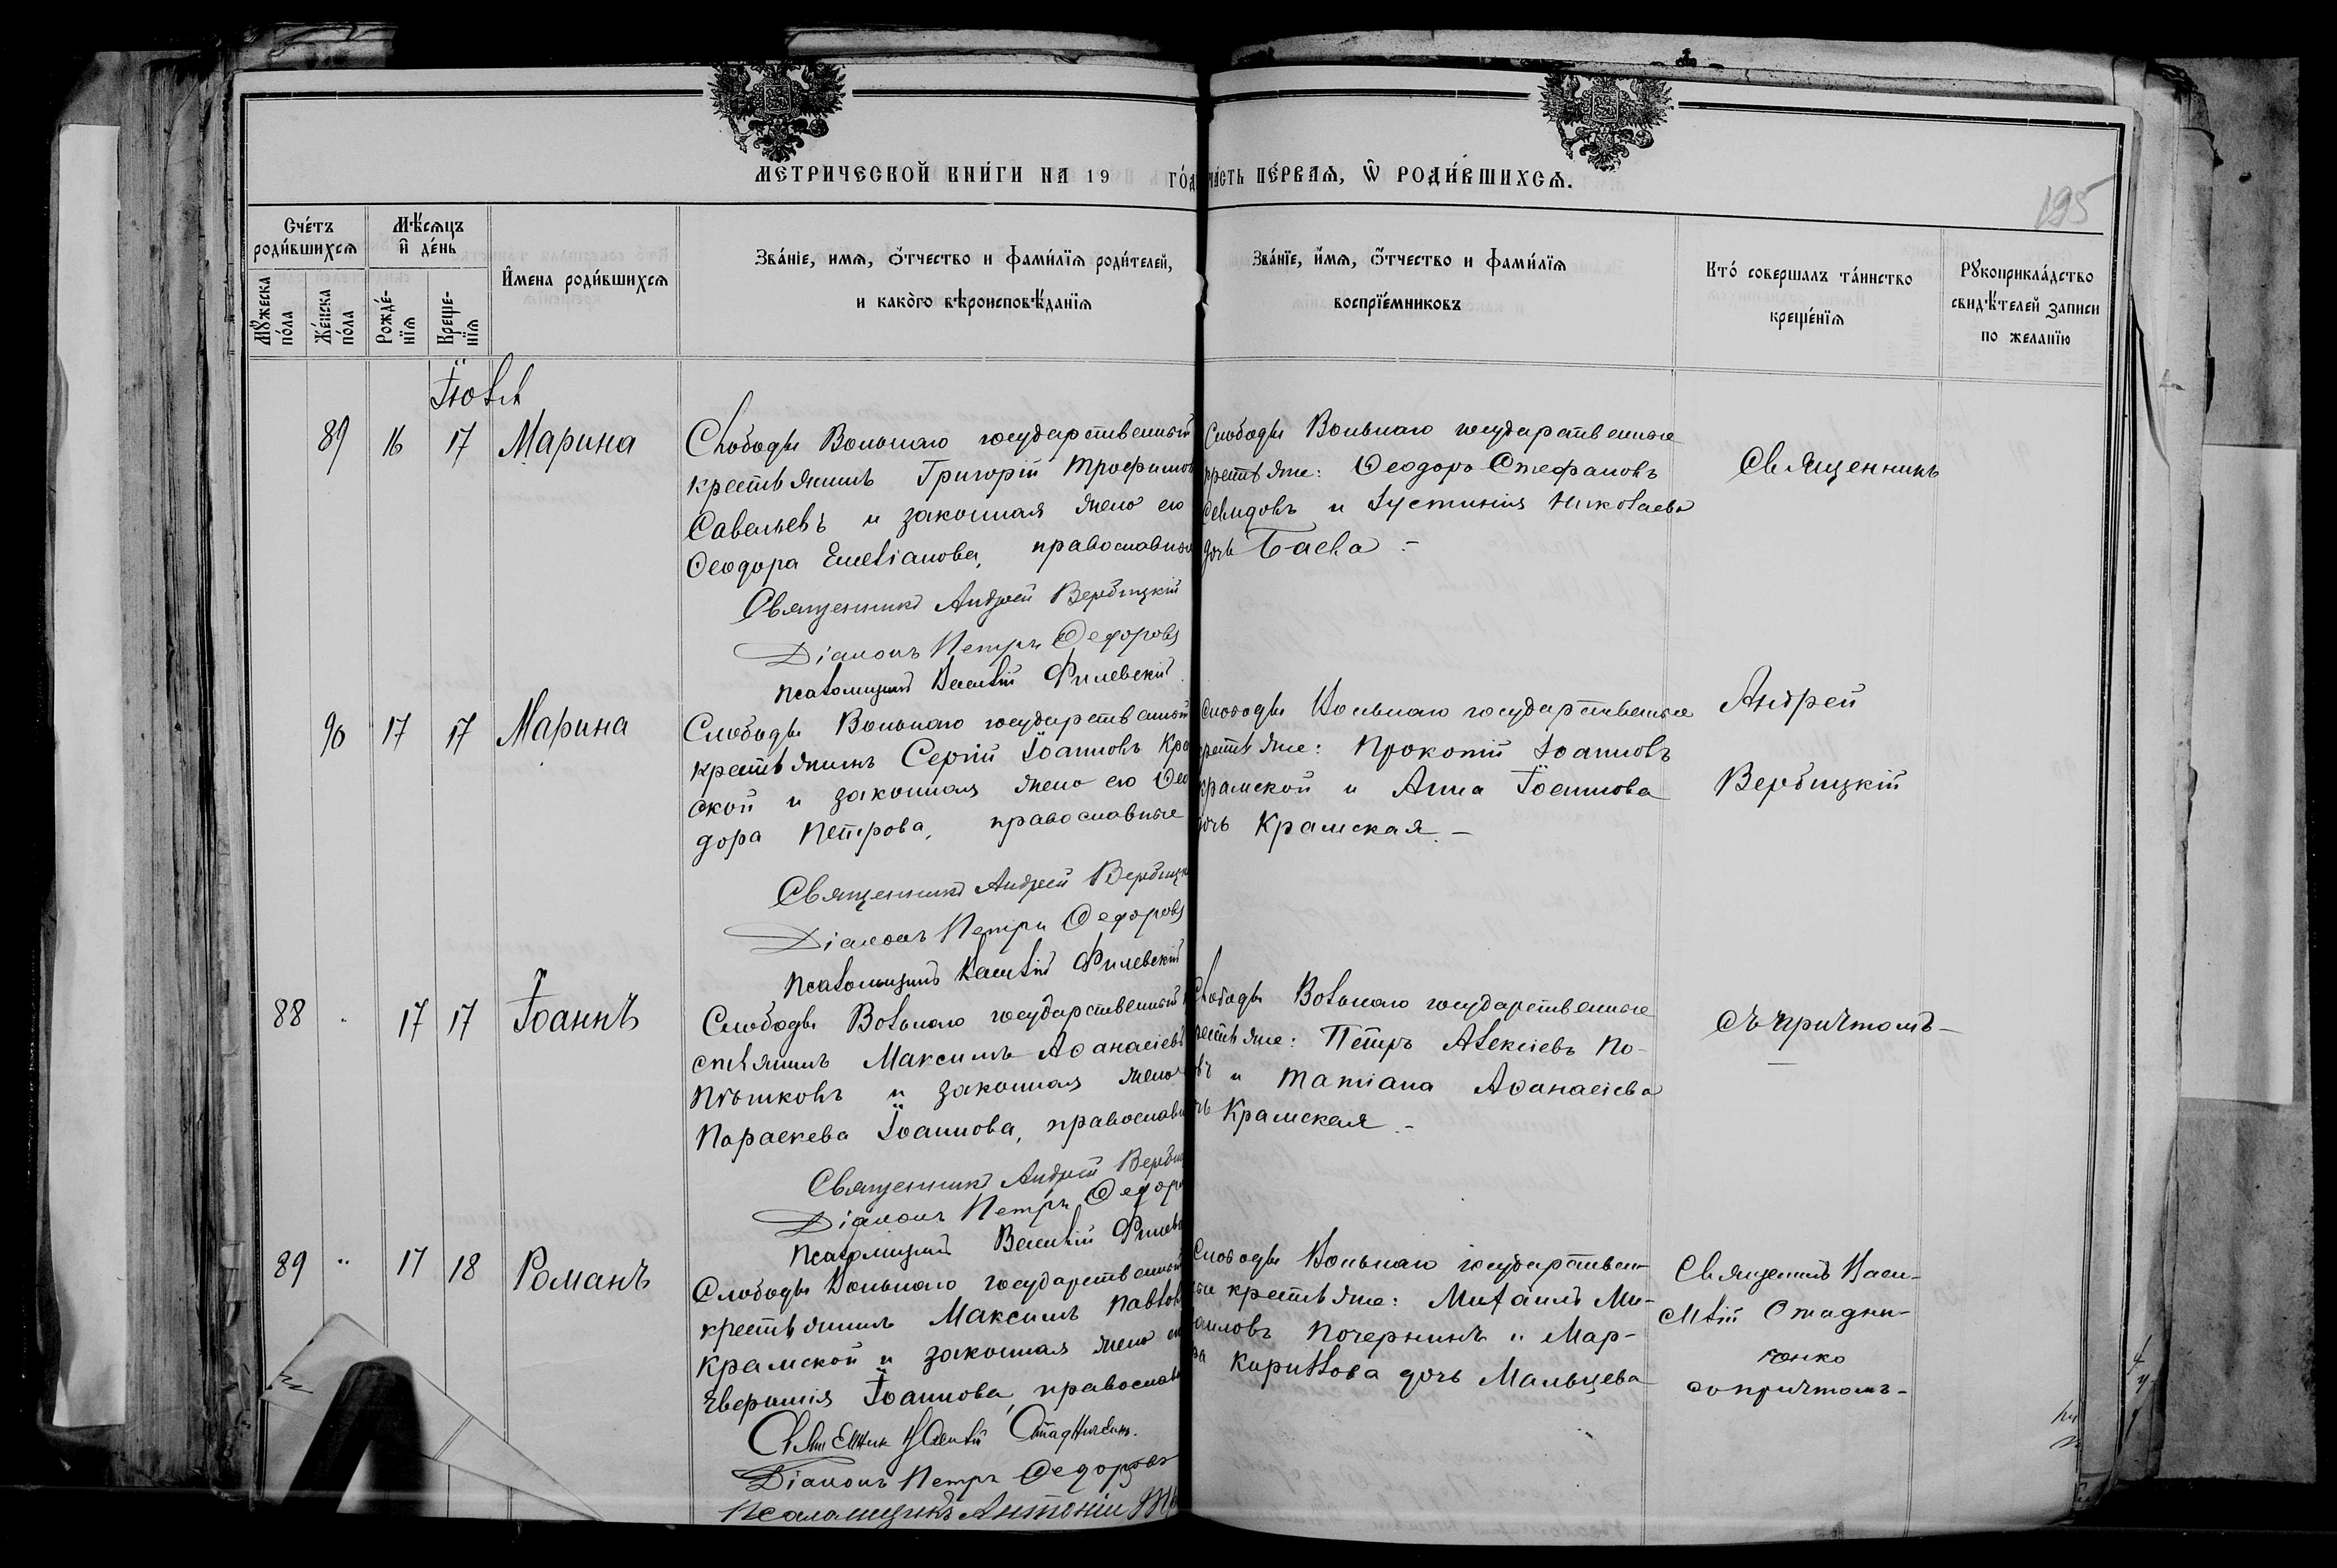 МЕТРИЧЕСКОЙ КНИ́ГИ НА 19 ГО́Д
ЧА́СТЬ ПЕ́РВАЯ, Ѿ РОДИ́ВШИХСЯ.
195
Сче́тъ роди́вшихся
Мꙋ́жеска по́ла
Же́нска по́ла
Мѣ́сяцъ и де́нь
Рожде́-нїя
Креще-нїя
И҆мена роди́вшихся
Зва́нїе, имя, ѻ҆́тчество и фами́лїя роди́телей,
и како́го вѣроисповѣ́данїя
Зва́нїе, и҆́мя, ѻ҆́тчество и фами́лїя
воспрїе́мниковъ
Кто́ совершалъ та́инство
креще́нїя
Рꙋкоприкла́дство
свидѣ́телей записи
по желанїю
Іюля
89 16 17 Марина
Слободы Вольнаго государственный
крестьянинъ Григорій Трофимов
Савельевъ и законная жена его
Ѳеодора Емеліанова, православные
Священникъ Андрей Вербицкій
Діаконъ Петръ Ѳедоровъ
Псаломщикъ Василій Филевскій
Слободы Вольнаго государственные
крестьяне: Ѳеодоръ Стефановъ
и Іустинія Николаева
дочь Баева -
Священникъ
90 17 17 Марина
Слободы Вольнаго государственный
крестьянинъ Сергій Іоанновъ Кра
ской и законная жена его Ѳео
дора Петрова, православные
Священникъ Андрей Вербицк
Діаконъ Петръ Ѳедоровъ
Псаломщикъ Василій Филевскій
Слободы Вольнаго государственные
крестьяне: Прокопій Іоанновъ
Крамской и Анна Іоаннова
дочь Крамская. -
Андрей
Вербицкій
88 17 17 Іоаннъ
Слободы Вольнаго государственный
стьянинъ Максимъ Аѳанасіевъ
Пѣшковъ и законная жена
Параскева Іоаннова, православн
Священникъ Андрей Верби
Діаконъ Петръ Ѳедор
Псаломщикъ Василій Филевс
Слободы Вольнаго государственные
рестьяне: Петръ Алексіевъ По-
въ и Татіана Аѳанасіева
чь Крамская. -
съ причтомъ -
89 " 17 18 Романъ
Слободы Вольнаго государственный
крестьянинъ Максимъ Павлов
Крамской и законная жена ег
Іоаннова, православн
Священник Василій Стадниченк.
Діаконъ Петръ Ѳедоровъ
Псаломщикъ Антоній
Слободы Вольнаго государствен-
ные крестьяне: Михаилъ Ми-
аиловъ Почернинъ и Мар-
Кириллова дочь Мальцева
Священникъ Васи-
лій Стадни-
ченко
со причтомъ -